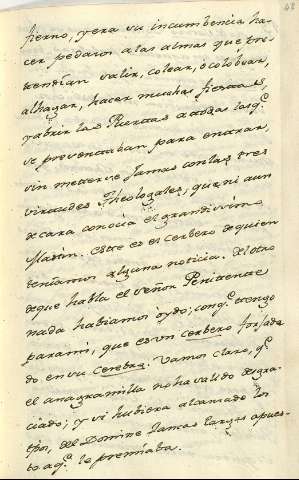 48
fierno, y era su incumbencia ha-
cer pedazos a las almas que pre-
tendian salir, colear, ò colobear,
alhagar, hacer muchas fiestas,
y abrir las Puertas a todas las q.e
se presentaban para entrar,
sin meterse jamas con las tres
virtudes Theologales, que ni aun
de cara conocia el grandissimo
Mastin. Este es el cerbero de quien
teniamos alguna noticia. Del otro
de que habla el señor Penitente
nada habiamos oydo; conq.e tengo
para mi, que es un cerbero forjado
do en su Cerebro. Vamos claro, q.e
el anagramilla no ha salido desgra-
ciado; y si hubiera alcanzado los
tpõs, del Domine Lamas largas apues-
to a q.e le premiaba.